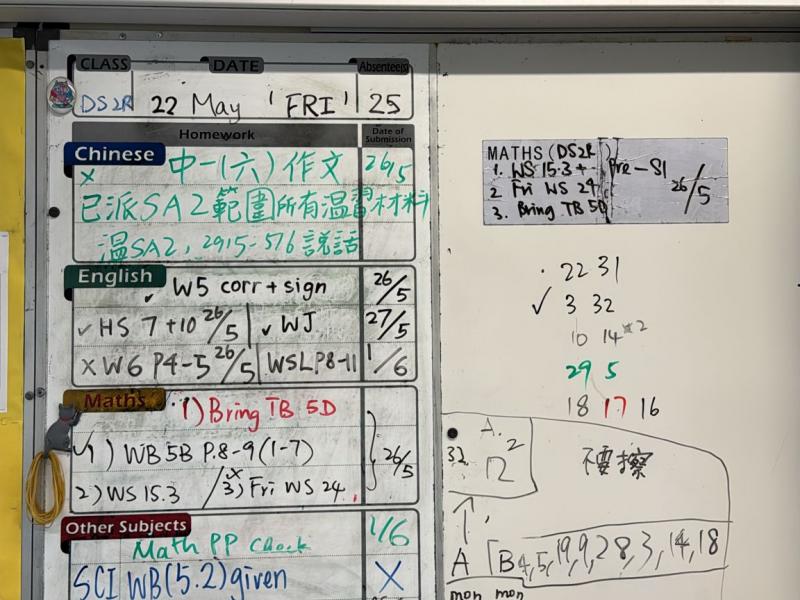 CLASS DATE Absentee(s)
DS2R 22 May 'FRI' 25
Homework Date of Submission
Chinese x 中一(六)作文 26/5
已派SA2範圍所有温習材料
温SA2, 2915-576 説話
English ✓ W5 corr + sign 26/5
✓ HS 7+10 26/5 ✓ WJ 27/5
X W6 P4-5 26/5 WSL P.8-11 1/6
Maths 1) Bring TB 5D
1) WB 5B P.8-9 (1-7) 26/5
2) WS 15.3 / 3) x Fri WS 24
Other Subjects Math PP Check 1/6
SCI WB(5.2) given X
MATHS (DS2R) Pre-S1
1. WS 15.3 +
2 Fri WS 24 26/5
3. Bring TB 5D
22 31
✓ 3 32
10 14 *2
29 5
18 17 16
A. 2
32 12
不要擦
A B 4,5,19,9,28,3,14,18
mon mon